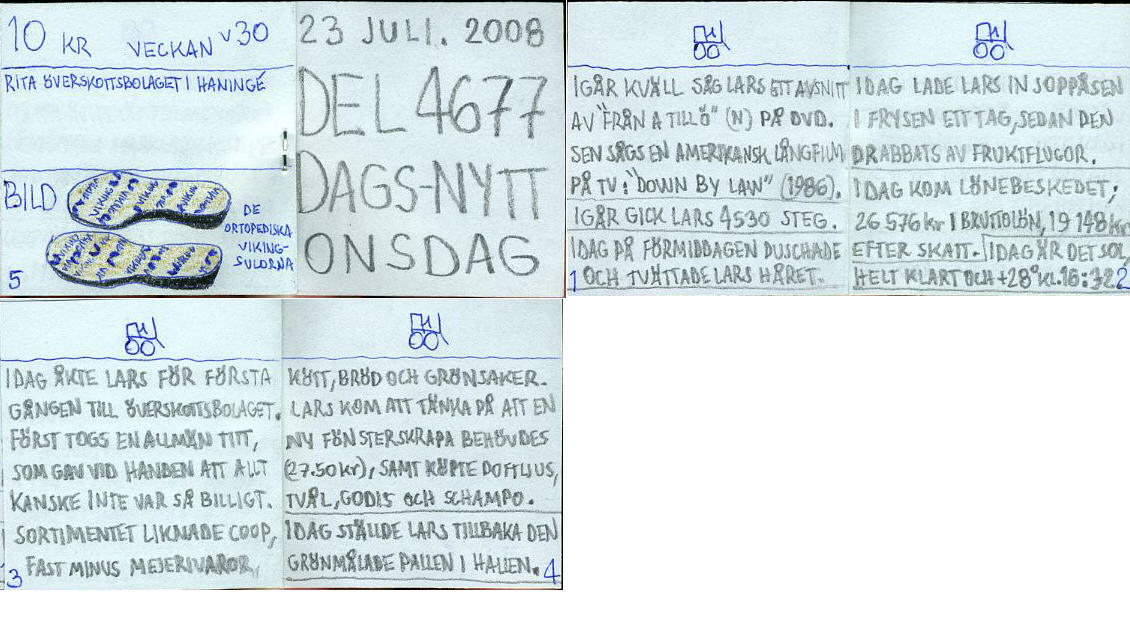 10 KR VECKAN V30
RITA ÖVERSKOTTSBOLAGET I HANINGE
BILD
DE
ORTOPEDISKA
VIKING-
SULORNA
5
23 JULI. 2008
DEL 4677
DAGS-NYTT
ONSDAG
IGÅR KVÄLL SÅG LARS ETT AVSNITT
AV "FRÅN A TILL Ö" (N) PÅ DVD.
SEN SÅGS EN AMERIKANSK LÅNGFILM
PÅ TV: "DOWN BY LAW" (1986).
IGÅR GICK LARS 4530 STEG.
IDAG PÅ FÖRMIDDAGEN DUSCHADE
1 OCH TVÄTTADE LARS HÅRET.
IDAG LADE LARS IN SOPPÅSEN
I FRYSEN ETT TAG, SEDAN DEN
DRABBATS AV FRUKTFLUGOR.
IDAG KOM LÖNEBESKEDET;
26 576 kr I BRUTTOLÖN, 19 148 kr
EFTER SKATT. IDAG ÄR DET SOL,
HELT KLART OCH +28° KL.16:32. 2
IDAG ÅKTE LARS FÖR FÖRSTA
GÅNGEN TILL ÖVERSKOTTSBOLAGET.
FÖRST TOGS EN ALLMÄN TITT,
SOM GAV VID HANDEN ATT ALLT
KANSKE INTE VAR SÅ BILLIGT.
SORTIMENTET LIKNADE COOP,
3 FAST MINUS MEJERIVAROR,
KÖTT, BRÖD OCH GRÖNSAKER.
LARS KOM ATT TÄNKA PÅ ATT EN
NY FÖNSTERSKRAPA BEHÖVDES
(27.50 kr), SAMT KÖPTE DOFTLJUS,
TVÅL, GODIS OCH SCHAMPO.
IDAG STÄLLDE LARS TILLBAKA DEN
GRÖNMÅLADE PALLEN I HALLEN. 4